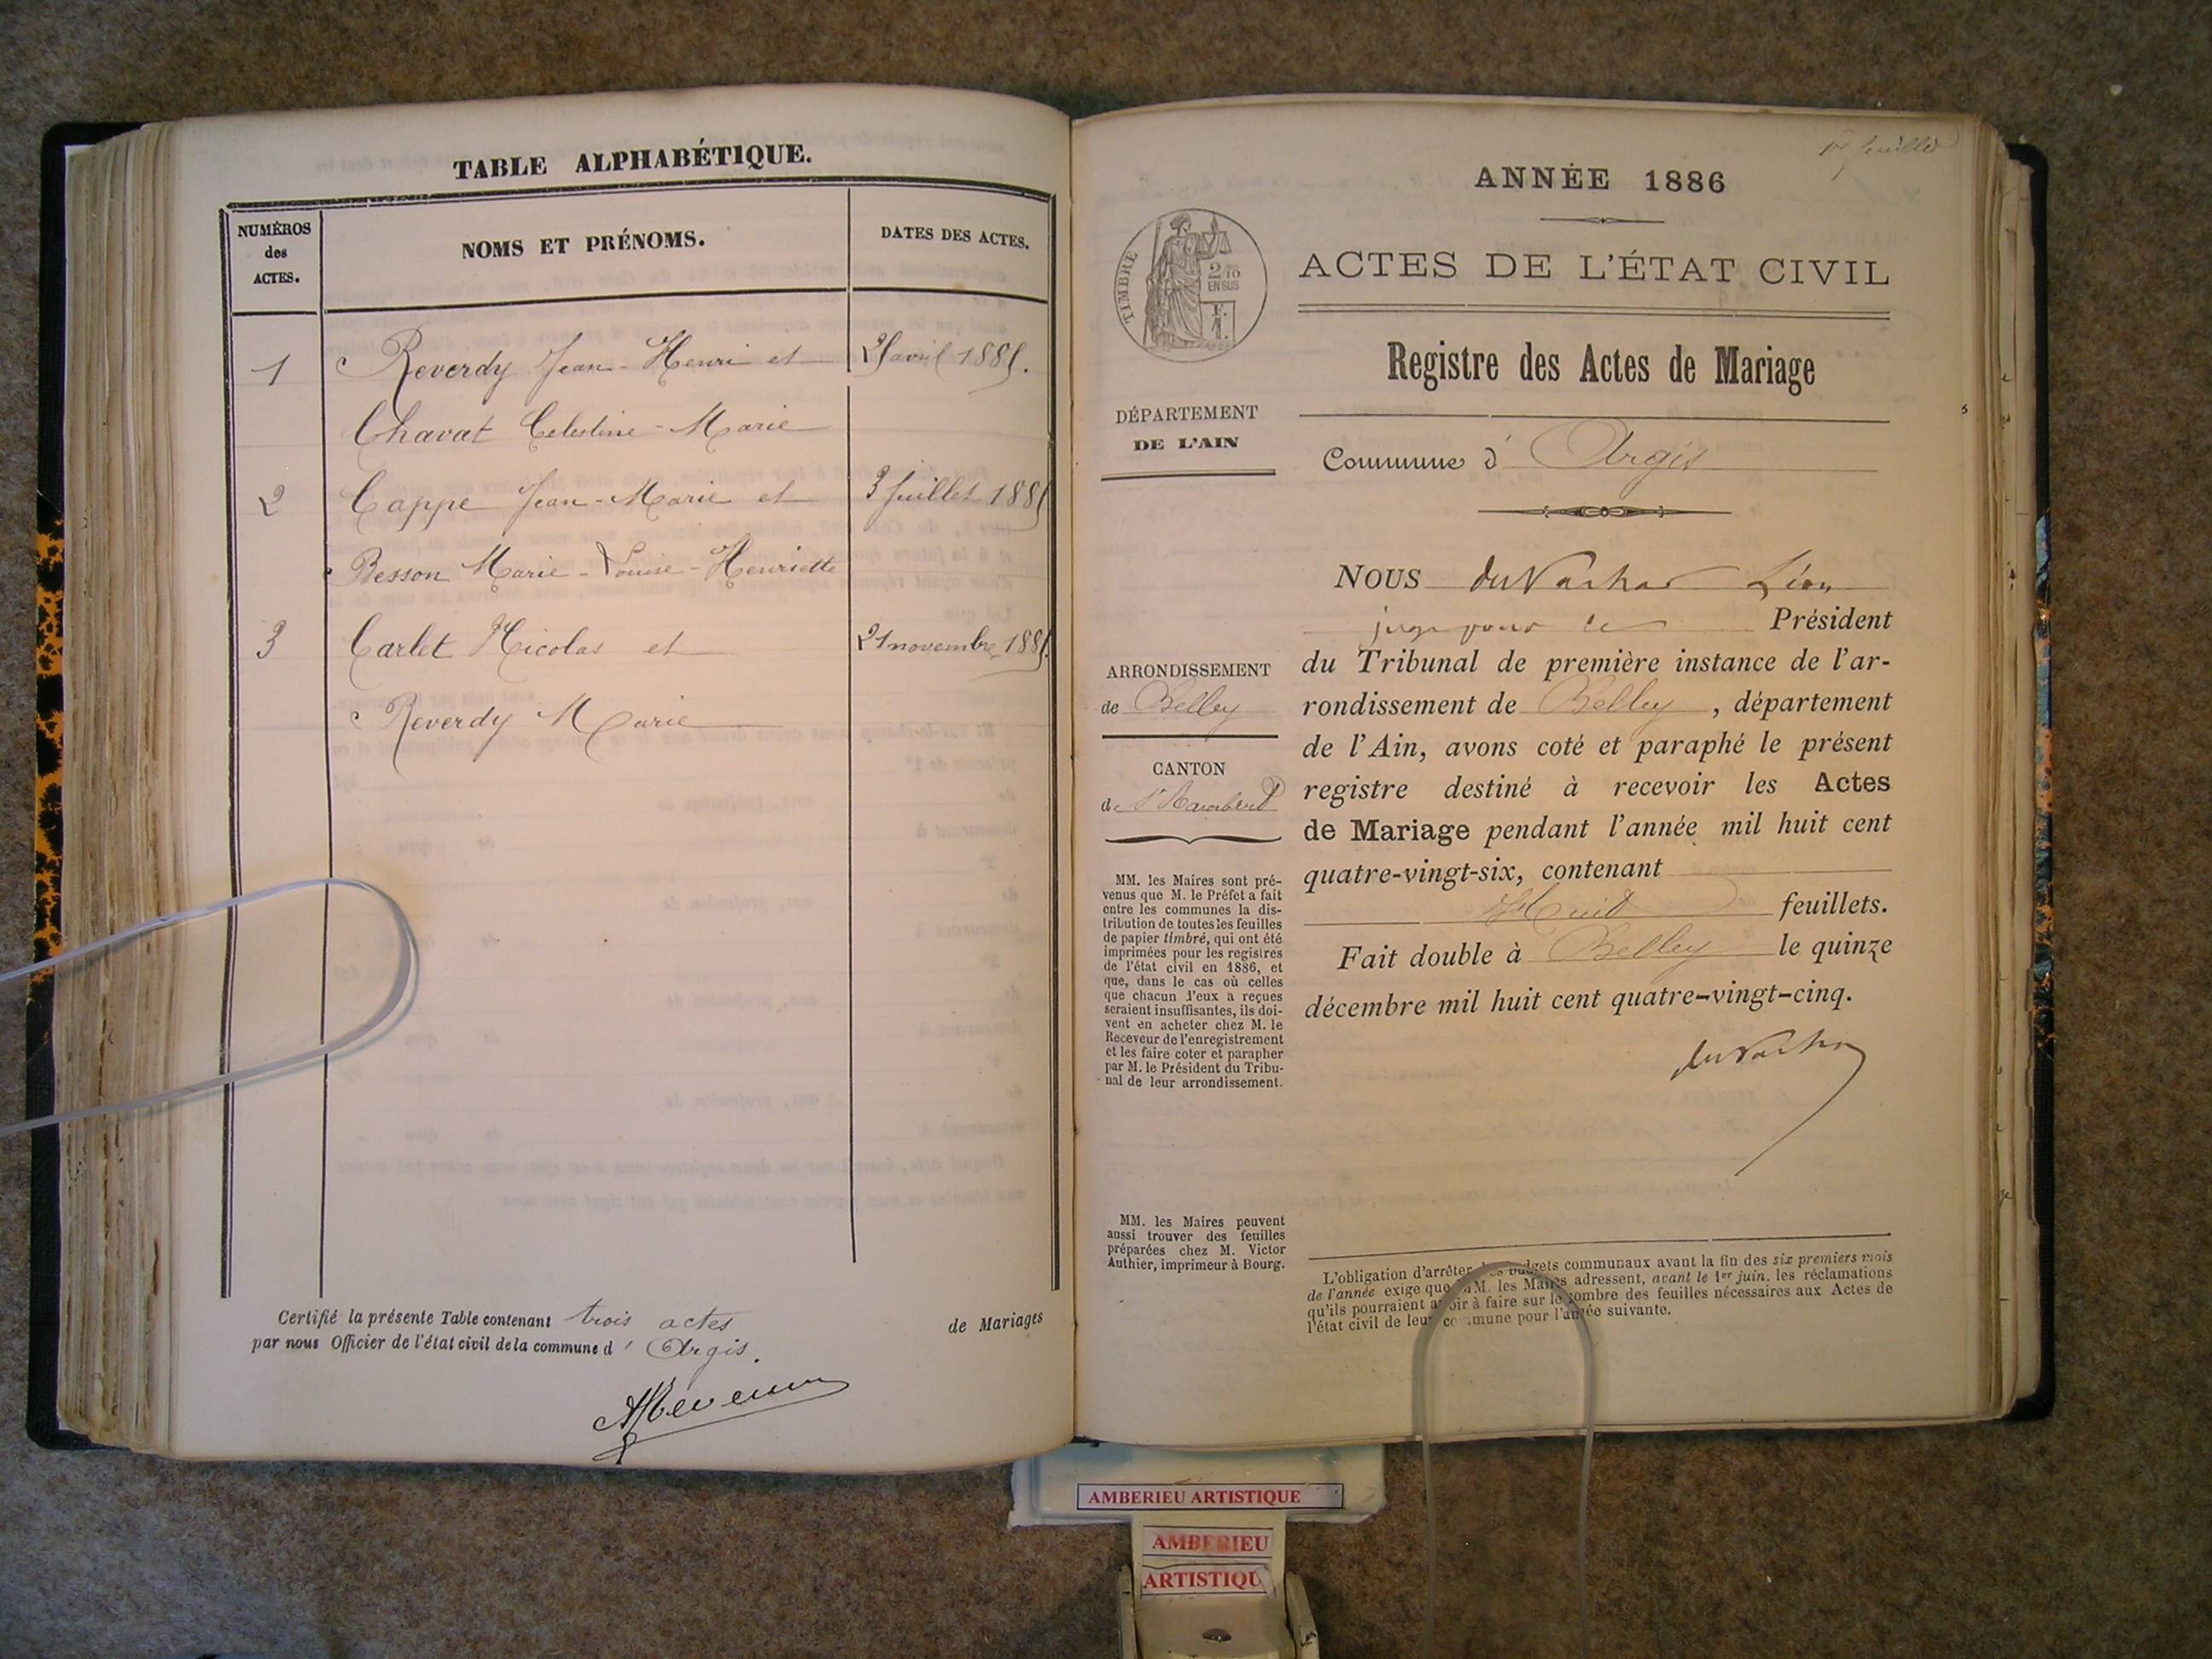 TABLE ALPHABÉTIQUE.
NUMÉROS
des
ACTES.
NOMS ET PRÉNOMS.
DATES DES ACTES.
1 Reverdy Jean-Henri et 25 avril 1885.
Chavat Celestine-Marie
2 Cappe Jean-Marie et 3 Juillet 1885
Besson Marie-Louise-Henriette
3 Carlet Nicolas et 21 novembre 1885.
Reverdy Marie
Certifié la présente Table contenant trois actes de Mariages
par nous Officier de l'état civil de la commune d' Argis.
1er feuillet
ANNÉE 1886
TIMBRE
2/10
EN SUS
ACTES DE L'ÉTAT CIVIL
Registre des Actes de Mariage
Commune d' Argis
DÉPARTEMENT
DE L'AIN
ARRONDISSEMENT
de Belley
CANTON
de St Rambert
MM. les Maires sont pré-
venus que M. le Préfet a fait
entre les communes la dis-
tribution de toutes les feuilles
de papier timbré, qui ont été
imprimées pour les registres
de l'état civil en 1886, et
que, dans le cas où celles
que chacun d'eux a reçues
seraient insuffisantes, ils doi-
vent en acheter chez M. le
Receveur de l'enregistrement
et les faire coter et parapher
par M. le Président du Tribu-
nal de leur arrondissement.
MM. les Maires peuvent
aussi trouver des feuilles
préparées chez M. Victor
Authier, imprimeur à Bourg.
NOUS Léon
juge pour le Président
du Tribunal de première instance de l'ar-
rondissement de Belley, département
de l'Ain, avons coté et paraphé le présent
registre destiné à recevoir les Actes
de Mariage pendant l'année mil huit cent
quatre-vingt-six, contenant
Huit feuillets.
Fait double à Belley le quinze
décembre mil huit cent quatre-vingt-cinq.
L'obligation d'arrêter les budgets communaux avant la fin des six premiers mois
de l'année exige que MM. les Maires adressent, avant le 1er juin, les réclamations
qu'ils pourraient avoir à faire sur le nombre des feuilles nécessaires aux Actes de
l'état civil de leur commune pour l'année suivante.
AMBERIEU ARTISTIQUE
AMBERIEU
ARTISTIQU